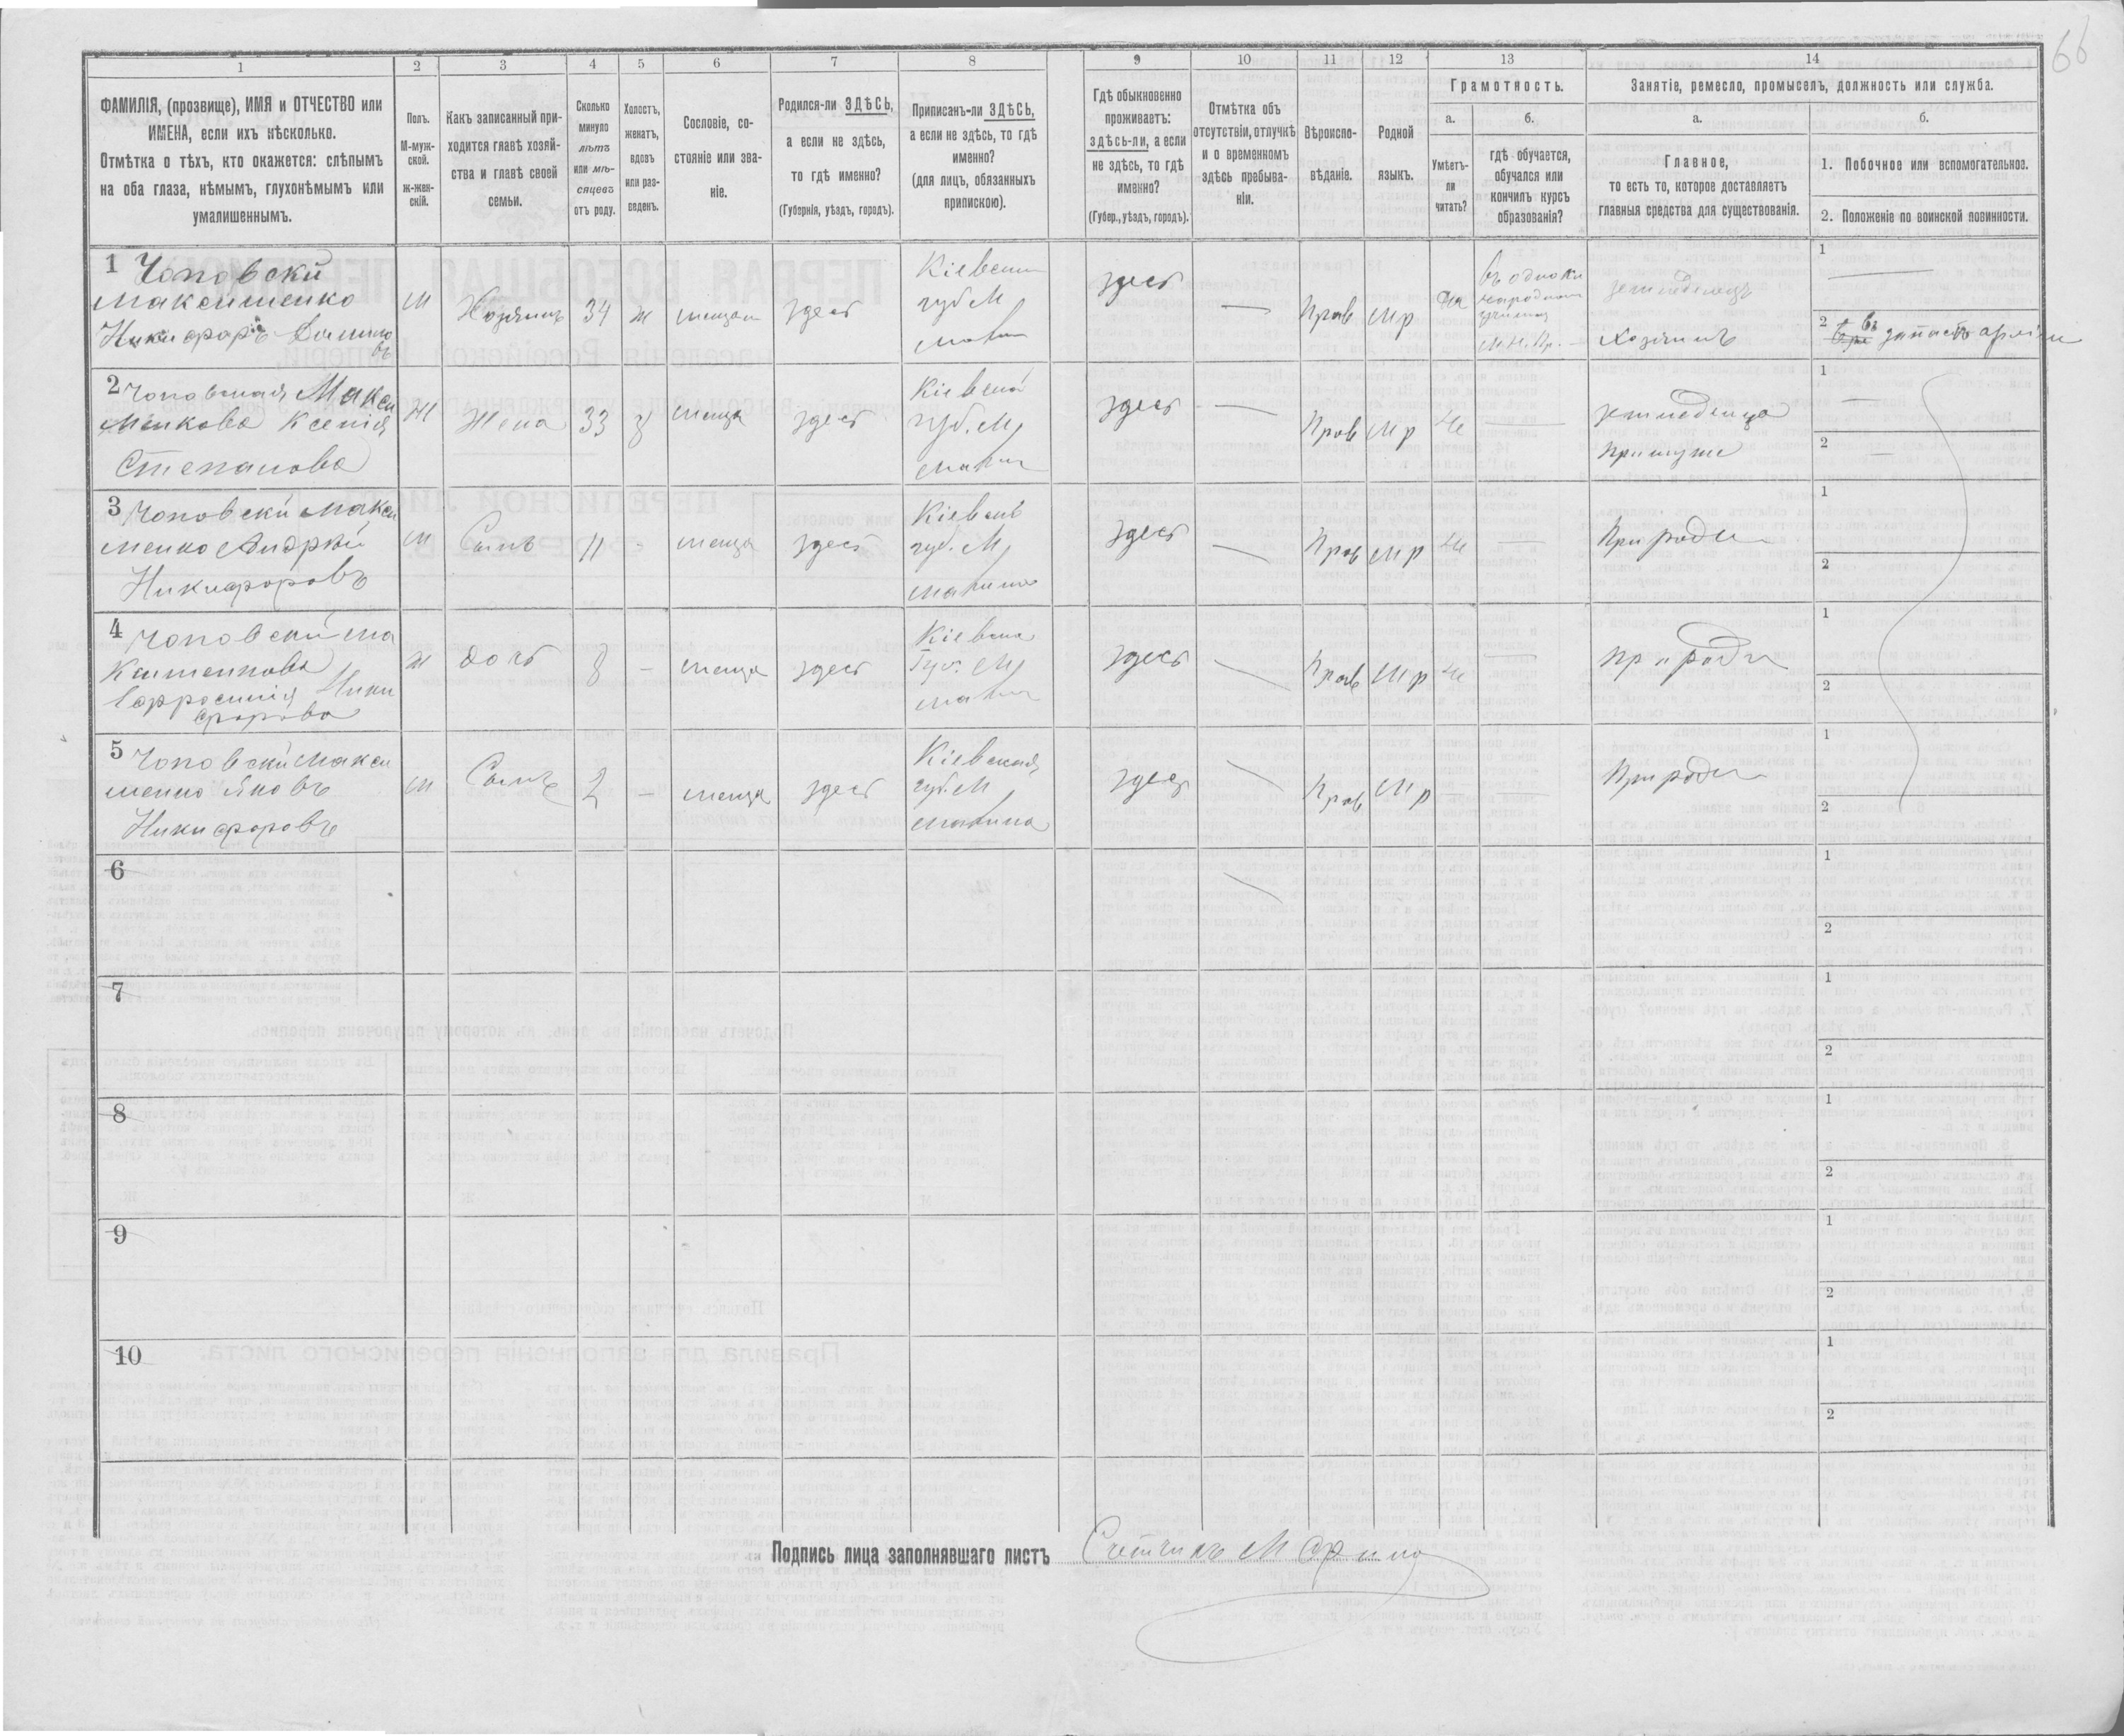 66
1 2 3 4 5 6 7 8 9 10 11 12 13 14
ФАМИЛІЯ, (прозвище), ИМЯ и ОТЧЕСТВО или
ИМЕНА, если ихъ нѣсколько.
Отмѣтка о тѣхъ, кто окажется: слѣпымъ
на оба глаза, нѣмымъ, глухонѣмымъ или
умалишеннымъ.
Полъ.
М-муж-
ской.
ж-жен-
скій.
Какъ записанный при-
ходится главѣ хозяй-
ства и главѣ своей
семьи.
Сколько
минуло
лѣтъ
или мѣ-
сяцевъ
отъ роду.
Холостъ,
женатъ,
вдовъ
или раз-
веденъ.
Сословіе, со-
стояніе или зва-
ніе.
Родился-ли ЗДѢСЬ,
а если не здѣсь,
то гдѣ именно?
(Губернія, уѣздъ, городъ).
Приписанъ-ли ЗДѢСЬ,
а если не здѣсь, то гдѣ
именно?
(для лицъ, обязанныхъ
припискою).
Гдѣ обыкновенно
проживаетъ:
здѣсь-ли, а если
не здѣсь, то гдѣ
именно?
(Губер., уѣздъ, городъ).
Отмѣтка объ
отсутствіи, отлучкѣ
и о временномъ
здѣсь пребыва-
ніи.
Вѣроиспо-
вѣданіе.
Родной
языкъ.
Грамотность.
а.
Умѣетъ-
ли
читать?
б.
гдѣ обучается,
обучался или
кончилъ курсъ
образованія?
Занятіе, ремесло, промыселъ, должность или служба.
а.
Главное,
то есть то, которое доставляетъ
главныя средства для существованія.
б.
1. Побочное или вспомогательное.
2. Положеніе по воинской повинности.
1 Чоповскій
Максименко
Никифоръ
М
Хозяинъ
34
ж
мещан
здесь
Кіевской
губ. М
здесь
—
Прав
Мр
да
земледелецъ
Хозяинъ
1 —
2 въ запасѣ арміи
2 Чоповская Макси
менкова Ксенія
Степанова
Ж
Жена
33
з
меща
здесь
Кіевской
губ. М
здесь
—
Прав
Мр
Не
—
земледельца
При муже
1 —
2 —
3 Чоповскій Макси
менко Андрей
Никифоровъ
М
Сынъ
11
-
меща
здесь
Кіевской
губ. М
здесь
—
Прав
Мр
Не
—
При роди
1
2
4 Чоповскій Ма
ксименкова
Евфросинія Ники
форова
Ж
дочь
8
—
меща
здесь
Кіевска
Губ. М
здесь
—
Прав
Мр
Не
—
При роди
1
2
5 Чоповскій Макси
менко Яковъ
Никифоровъ
М
Сынъ
2
—
меща
здесь
Кіевская
губ. М
здесь
—
Прав
Мр
—
—
При роди
1
2
6
1
2
7
1
2
8
1
2
9
1
2
10
1
2
Подпись лица заполнявшаго листъ Счетчикъ